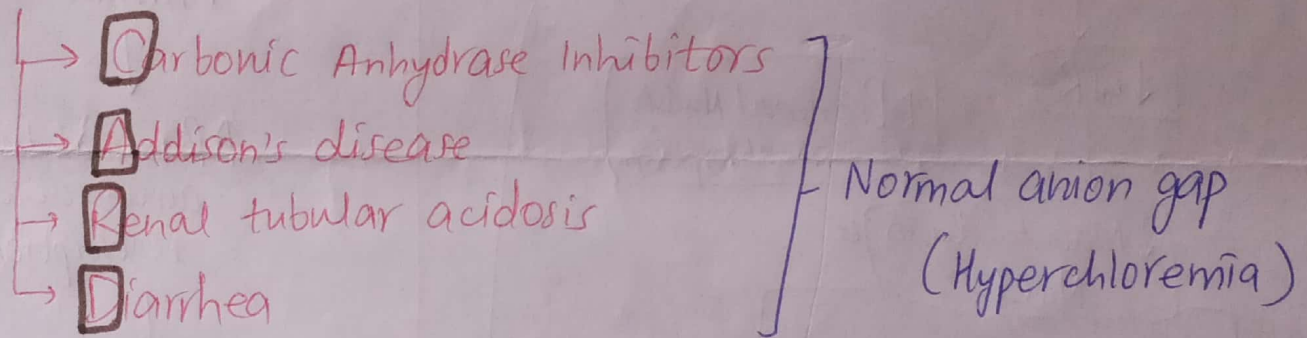 Carbonic Anhydrase Inhibitors
Addison's disease
Renal tubular acidosis
Diarrhea
Normal anion gap
(Hyperchloremia)